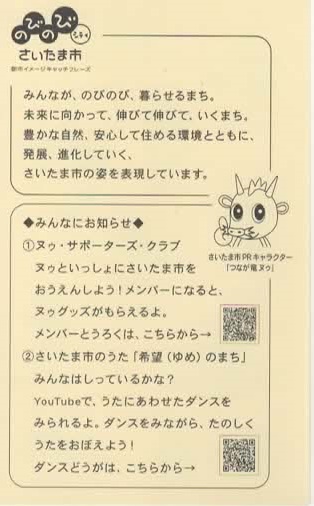 のびのびシティ
さいたま市
都市イメージキャッチフレーズ
みんなが、のびのび、暮らせるまち。
未来に向かって、伸びて伸びて、いくまち。
豊かな自然、安心して住める環境とともに、
発展、進化していく、
さいたま市の姿を表現しています。
さいたま市PRキャラクター
「つなが竜ヌゥ」
◆みんなにお知らせ◆
①ヌゥ・サポーターズ・クラブ
ヌゥといっしょにさいたま市を
おうえんしよう！メンバーになると、
ヌゥグッズがもらえるよ。
メンバーとうろくは、こちらから→
②さいたま市のうた「希望（ゆめ）のまち」
みんなはしっているかな？
YouTubeで、うたにあわせたダンスを
みられるよ。ダンスをみながら、たのしく
うたをおぼえよう！
ダンスどうがは、こちらから→